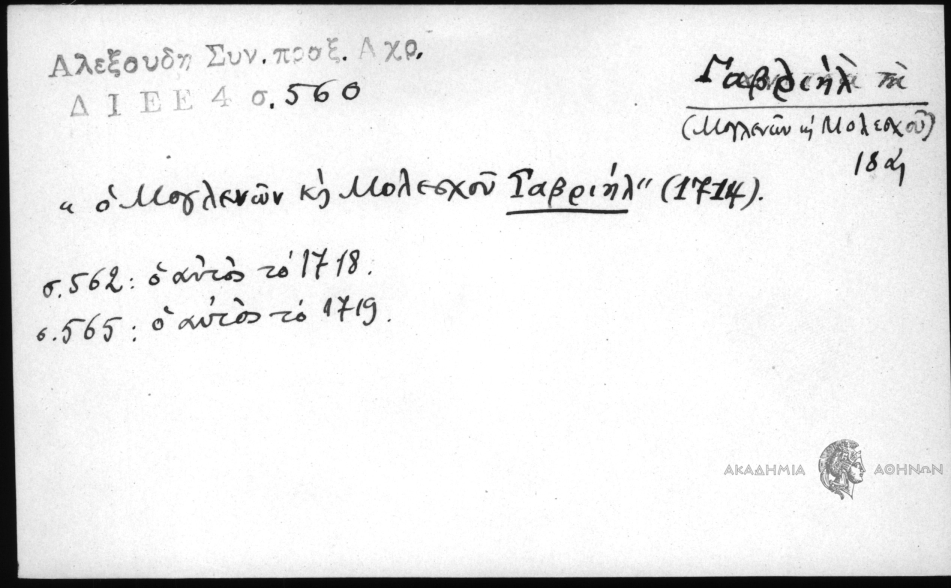 Αλεξουδη Συν. πραξ. Αχρ.
Δ Ι Ε Ε 4 σ. 560
Γαβριήλ
(Μογλενῶν κὴ Μολεσχοῦ)
18 αι
"ὁ Μογλενῶν κὴ Μολεσχοῦ Γαβριήλ" (1714).
σ. 562: ὁ αὐτὸς τό 1718.
σ. 565: ὁ αὐτὸς τό 1719.
ΑΚΑΔΗΜΙΑ ΑΘΗΝΩΝ